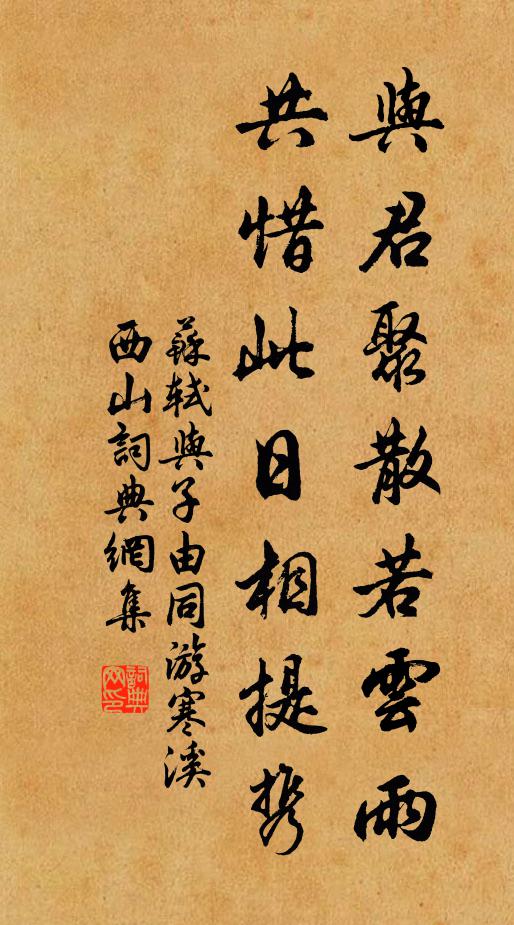 與君聚散若雲雨
共惜此日相提攜
蘇軾與子由同游寒溪
西山詞典網集
詞典網印